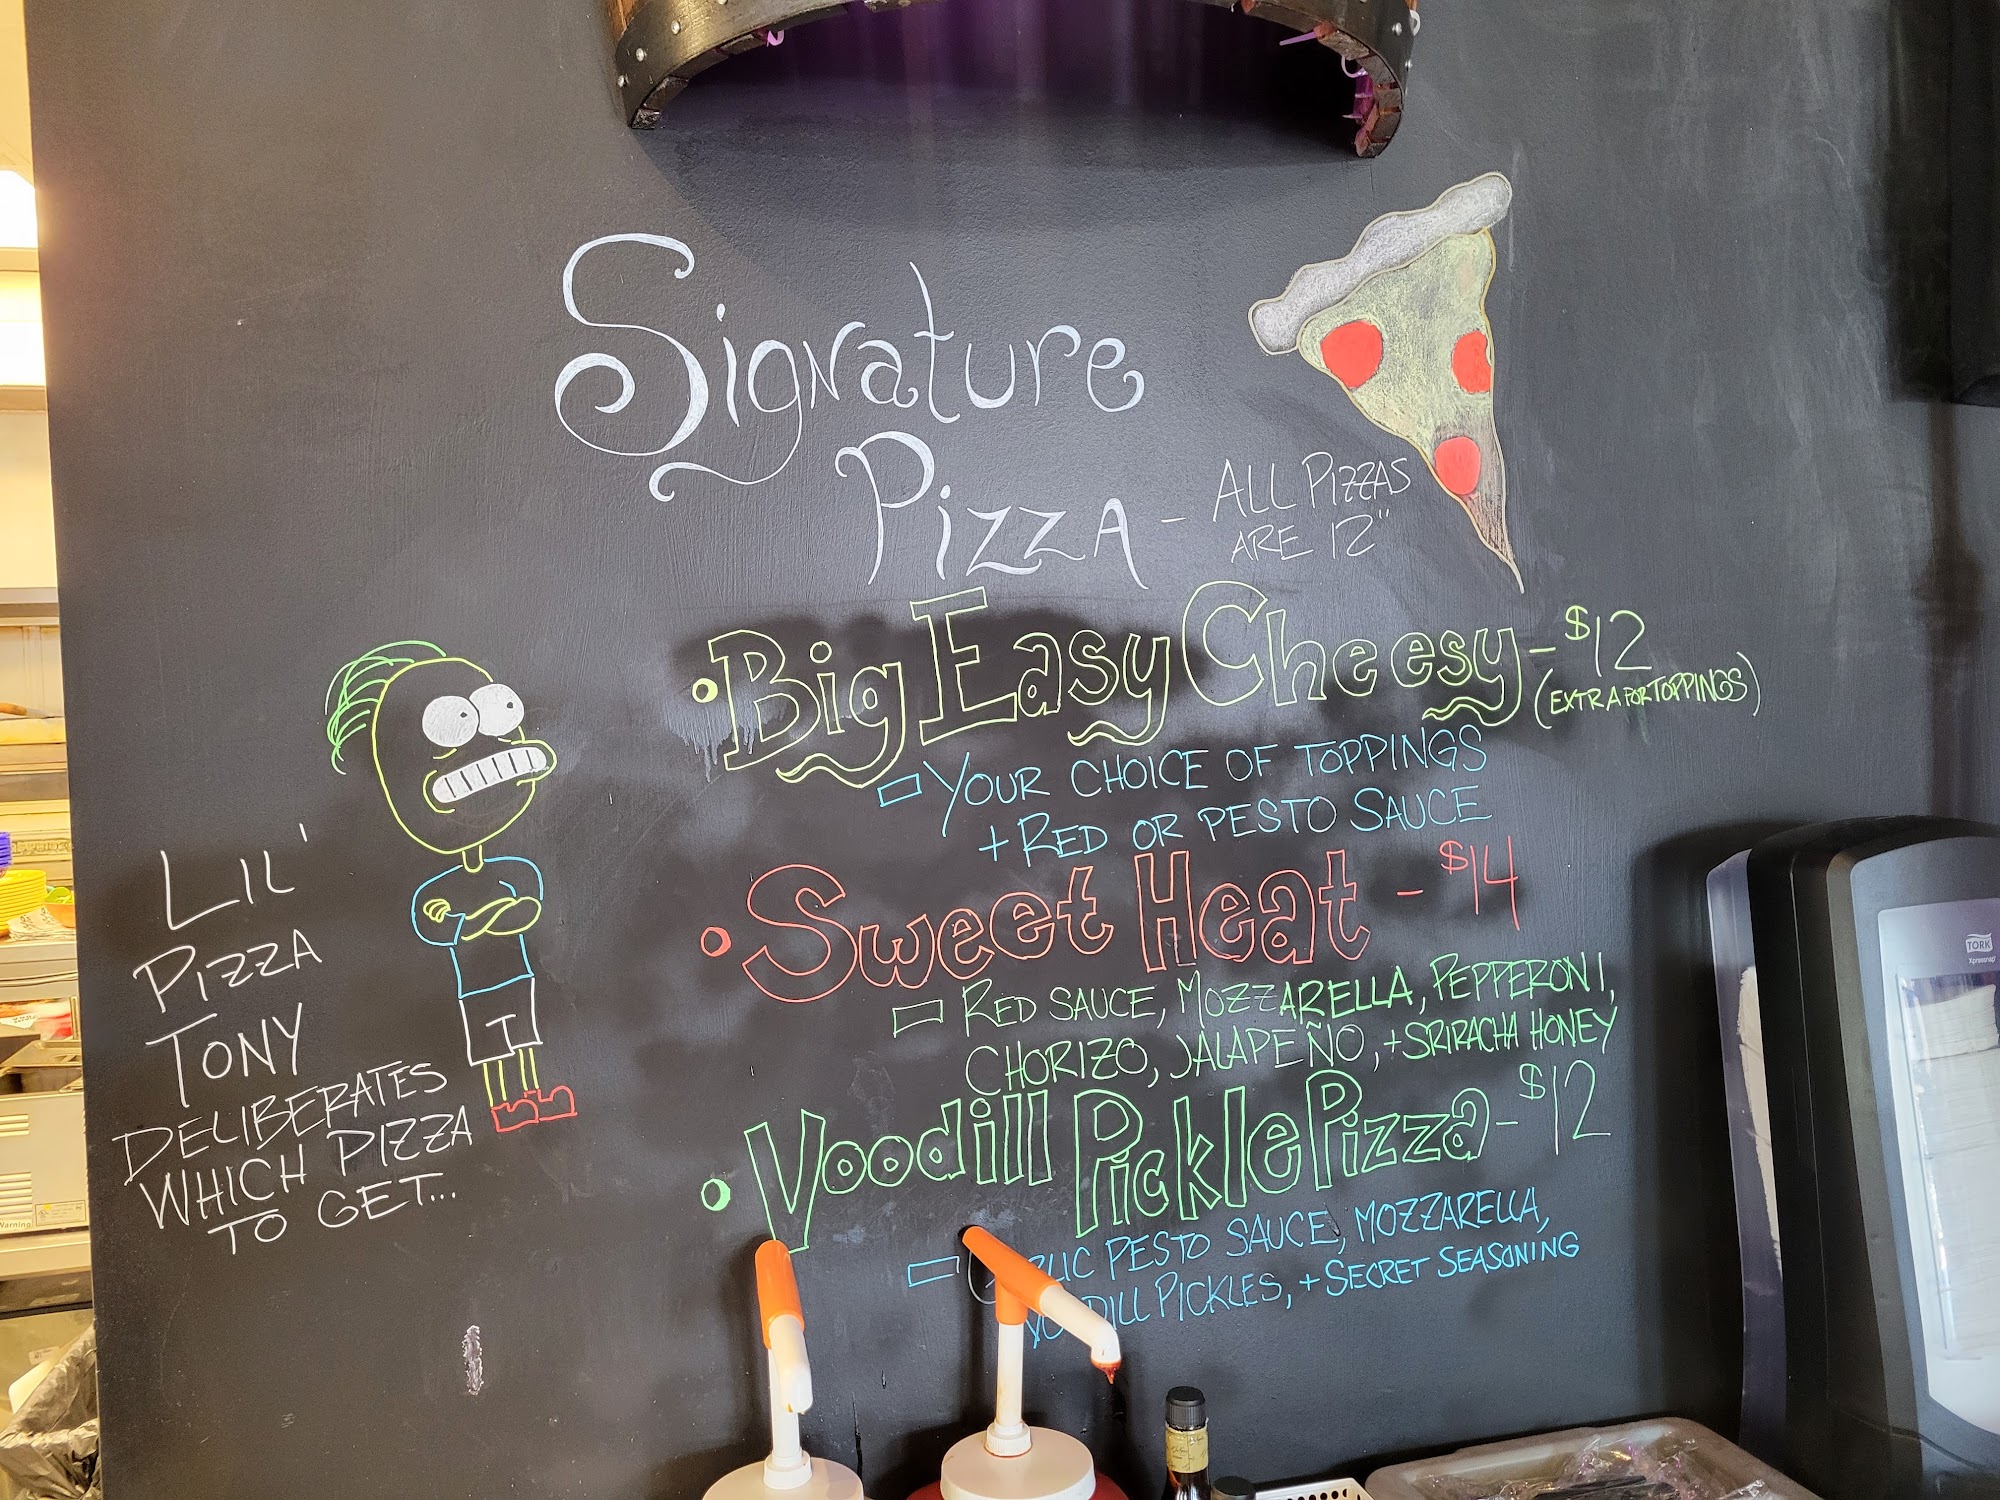 Signature
Pizza - ALL PIZZAS
ARE 12"
Big Easy Cheesy - $12
(EXTRA FOR TOPPINGS)
YOUR CHOICE OF TOPPINGS
+ RED OR PESTO SAUCE
Sweet Heat - $14
RED SAUCE, MOZZARELLA, PEPPERONI,
CHORIZO, JALAPEÑO, + SRIRACHA HONEY
Voodill Pickle Pizza - $12
PESTO SAUCE, MOZZARELLA,
PICKLES, + SECRET SEASONING
LIL'
PIZZA
TONY
DELIBERATES
WHICH PIZZA
TO GET...
T
TORK
Xpressnap
Warning